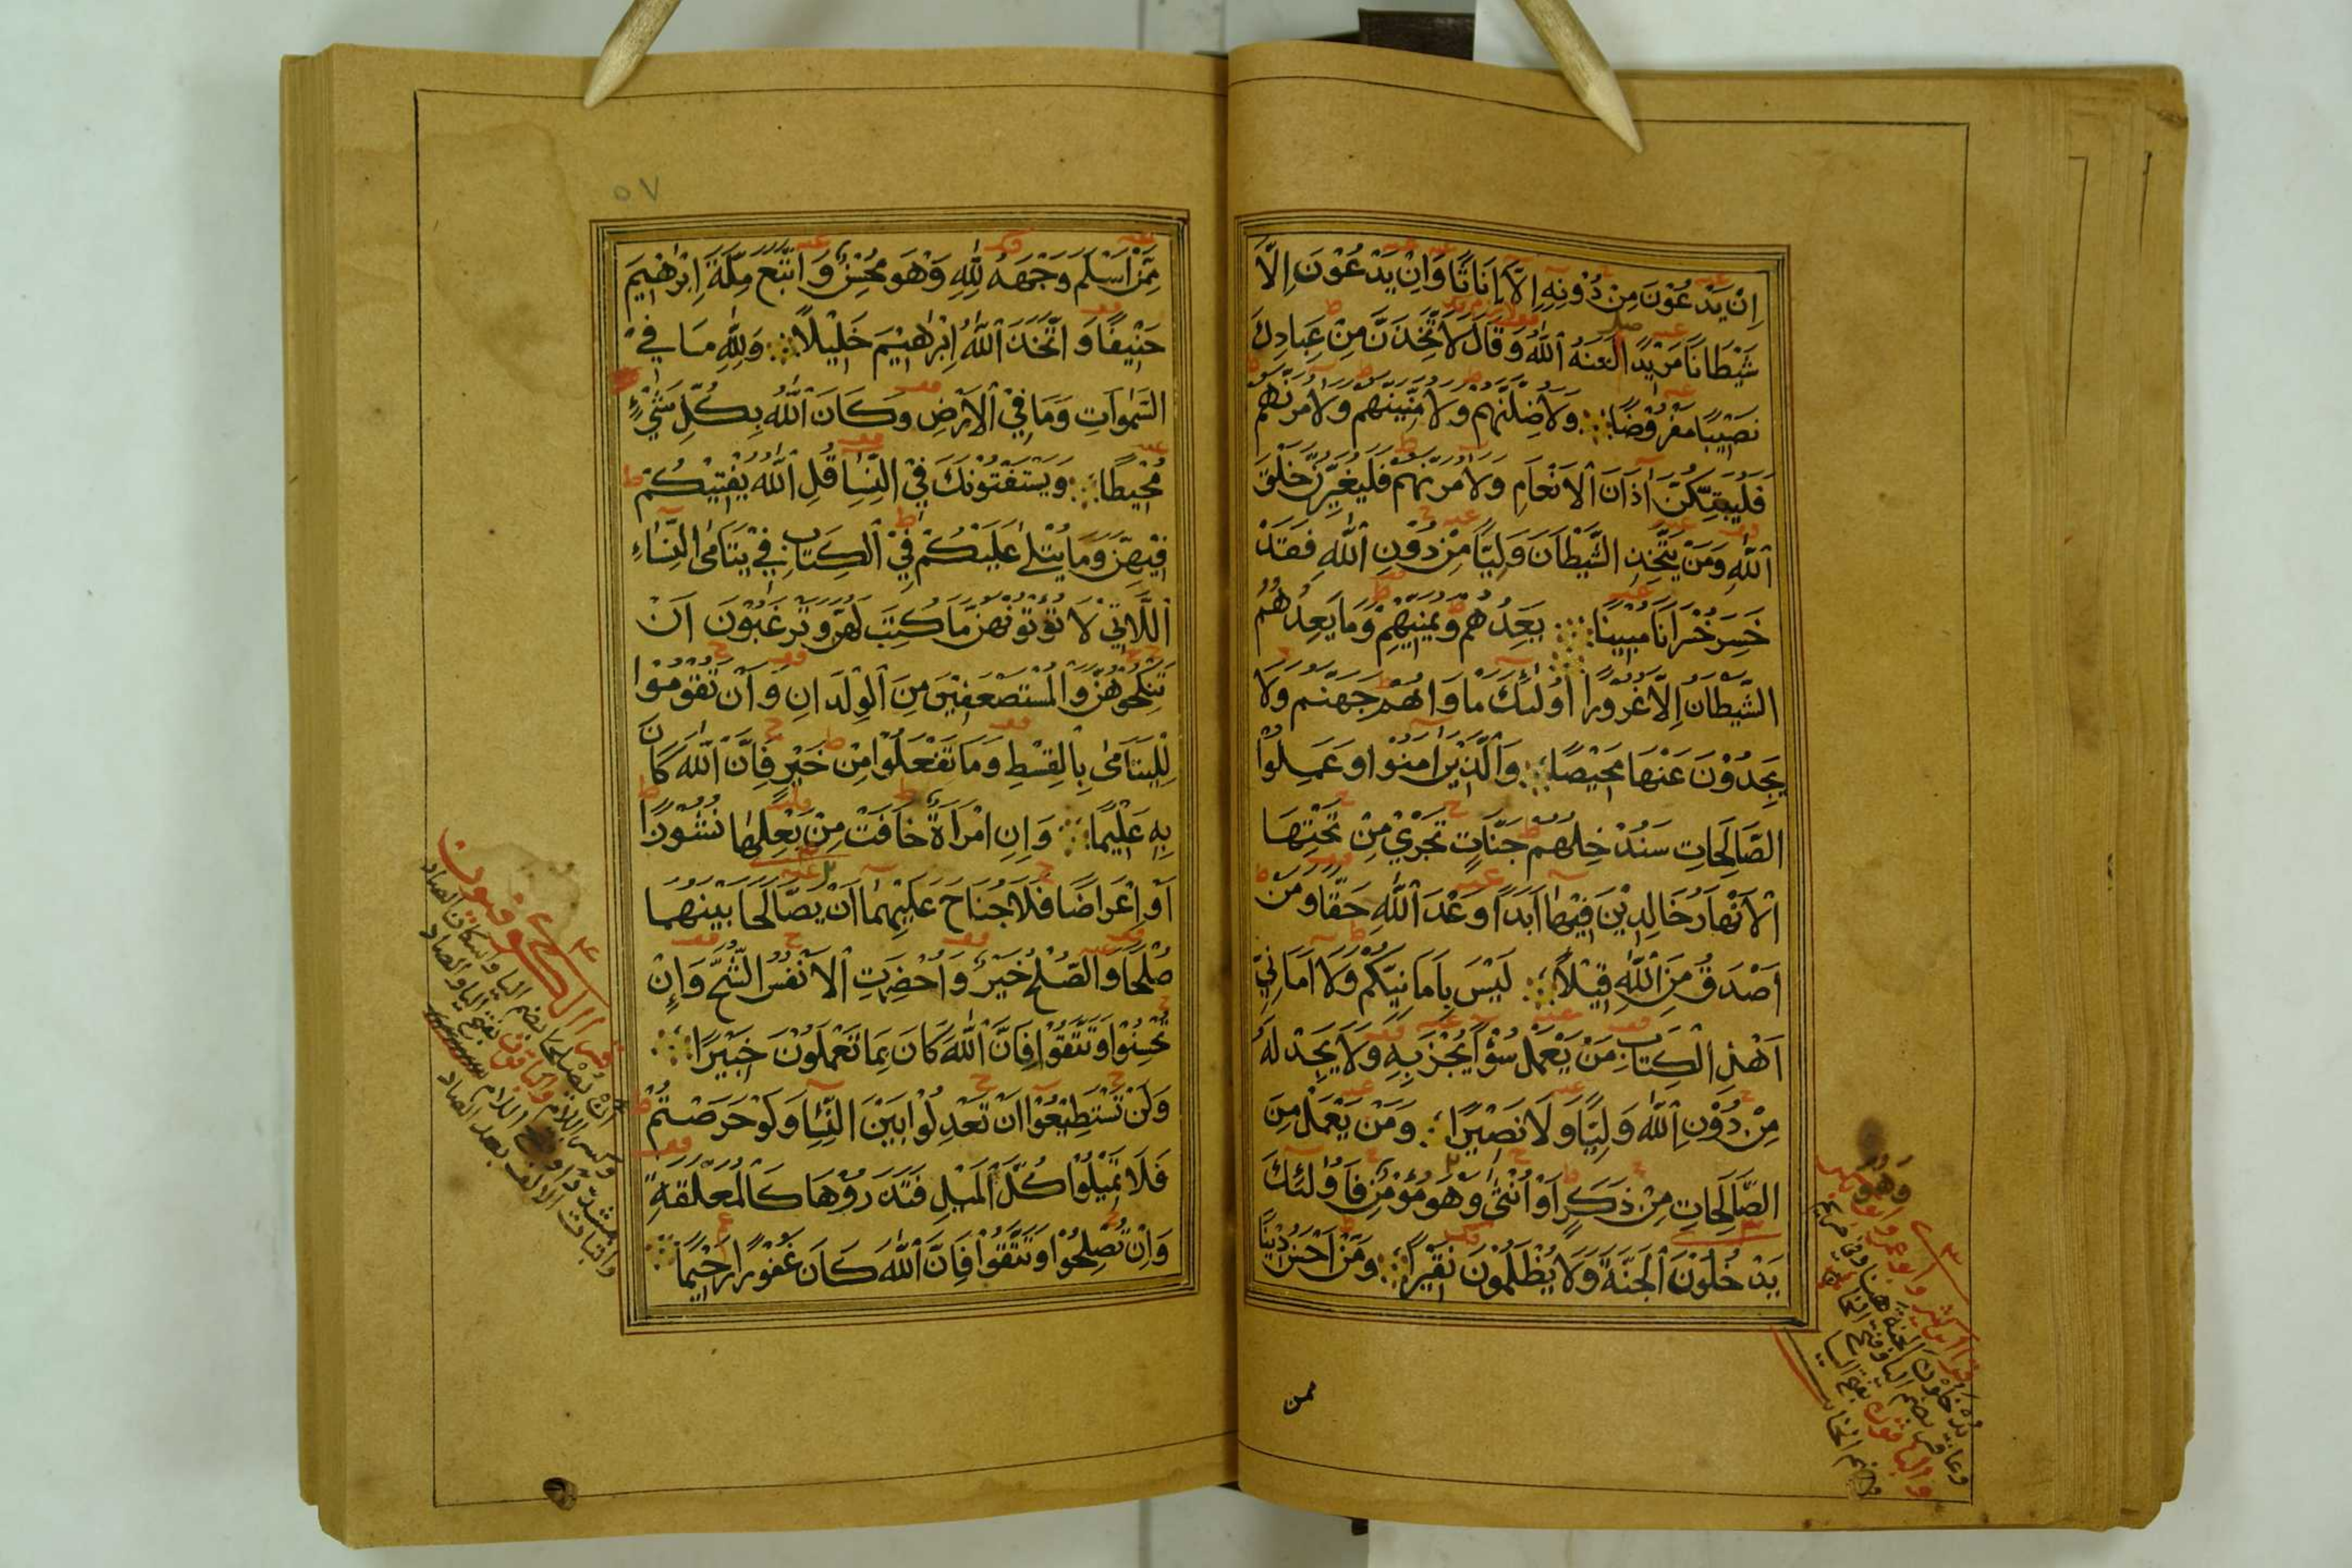 اِنْ يَدْعُوْنَ مِنْ دُوْنِهِ اِلَّا اِنَاثًا وَاِنْ يَدْعُوْنَ اِلَّا
شَيْطَانًا مَرِيْدًا لَعَنَهُ اللّٰهُ وَقَالَ لَاَتَّخِذَنَّ مِنْ عِبَادِكَ
نَصِيْبًا مَفْرُوْضًا وَلَاُضِلَّنَّهُمْ وَلَاُمَنِّيَنَّهُمْ وَلَاٰمُرَنَّهُمْ
فَلَيُبَتِّكُنَّ اٰذَانَ الْاَنْعَامِ وَلَاٰمُرَنَّهُمْ فَلَيُغَيِّرُنَّ خَلْقَ
اللّٰهِ وَمَنْ يَتَّخِذِ الشَّيْطَانَ وَلِيًّا مِنْ دُوْنِ اللّٰهِ فَقَدْ
خَسِرَ خُسْرَانًا مُبِيْنًا يَعِدُهُمْ وَيُمَنِّيْهِمْ وَمَا يَعِدُهُمُ
الشَّيْطَانُ اِلَّا غُرُوْرًا اُولٰئِكَ مَاْوَاهُمْ جَهَنَّمُ وَلَا
يَجِدُوْنَ عَنْهَا مَحِيْصًا وَالَّذِيْنَ اٰمَنُوْا وَعَمِلُوا
الصَّالِحَاتِ سَنُدْخِلُهُمْ جَنَّاتٍ تَجْرِيْ مِنْ تَحْتِهَا
الْاَنْهَارُ خَالِدِيْنَ فِيْهَا اَبَدًا وَعْدَ اللّٰهِ حَقًّا وَمَنْ
اَصْدَقُ مِنَ اللّٰهِ قِيْلًا لَيْسَ بِاَمَانِيِّكُمْ وَلَا اَمَانِيِّ
اَهْلِ الْكِتَابِ مَنْ يَعْمَلْ سُوْءًا يُجْزَ بِهِ وَلَا يَجِدْ لَهُ
مِنْ دُوْنِ اللّٰهِ وَلِيًّا وَلَا نَصِيْرًا وَمَنْ يَعْمَلْ مِنَ
الصَّالِحَاتِ مِنْ ذَكَرٍ اَوْ اُنْثٰى وَهُوَ مُؤْمِنٌ فَاُولٰئِكَ
يَدْخُلُوْنَ الْجَنَّةَ وَلَا يُظْلَمُوْنَ نَقِيْرًا وَمَنْ اَحْسَنُ دِيْنًا
ممن
وَهُوَ
٥٧
مِمَّنْ اَسْلَمَ وَجْهَهُ لِلّٰهِ وَهْوَ مُحْسِنٌ وَاتَّبَعَ مِلَّةَ اِبْرٰهِيْمَ
حَنِيْفًا وَاتَّخَذَ اللّٰهُ اِبْرٰهِيْمَ خَلِيْلًا وَلِلّٰهِ مَا فِي
السَّمٰوَاتِ وَمَا فِي الْاَرْضِ وَكَانَ اللّٰهُ بِكُلِّ شَيْءٍ
مُحِيْطًا وَيَسْتَفْتُوْنَكَ فِي النِّسَا قُلِ اللّٰهُ يُفْتِيْكُمْ
فِيْهِنَّ وَمَا يُتْلٰى عَلَيْكُمْ فِي الْكِتَابِ فِيْ يَتَامَى النِّسَاءِ
اللَّاتِيْ لَا تُؤْتُوْنَهُنَّ مَا كُتِبَ لَهُنَّ وَتَرْغَبُوْنَ اَنْ
تَنْكِحُوْهُنَّ وَالْمُسْتَضْعَفِيْنَ مِنَ الْوِلْدَانِ وَاَنْ تَقُوْمُوْا
لِلْيَتَامٰى بِالْقِسْطِ وَمَا تَفْعَلُوْا مِنْ خَيْرٍ فَاِنَّ اللّٰهَ كَانَ
بِهِ عَلِيْمًا وَاِنِ امْرَاَةٌ خَافَتْ مِنْ بَعْلِهَا نُشُوْزًا
اَوْ اِعْرَاضًا فَلَا جُنَاحَ عَلَيْهِمَا اَنْ يَصَّالَحَا بَيْنَهُمَا
صُلْحًا وَالصُّلْحُ خَيْرٌ وَاُحْضِرَتِ الْاَنْفُسُ الشُّحَّ وَاِنْ
تُحْسِنُوْا وَتَتَّقُوْا فَاِنَّ اللّٰهَ كَانَ بِمَا تَعْمَلُوْنَ خَبِيْرًا
وَلَنْ تَسْتَطِيْعُوْا اَنْ تَعْدِلُوْا بَيْنَ النِّسَا وَلَوْ حَرَصْتُمْ
فَلَا تَمِيْلُوْا كُلَّ الْمَيْلِ فَتَذَرُوْهَا كَالْمُعَلَّقَةِ
وَاِنْ تُصْلِحُوْا وَتَتَّقُوْا فَاِنَّ اللّٰهَ كَانَ غَفُوْرًا رَحِيْمًا
قرا الكوفيون
ان يُصْلِحا بضم اليا واسكان الصاد
وكسر اللام والباقون بفتح اليا والصاد
مشددا وفتح اللام
واثبات الالف بعد الصاد